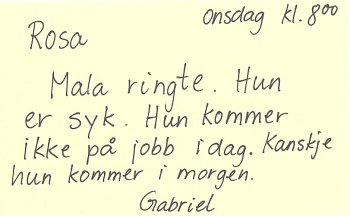 onsdag kl. 8⁰⁰
Rosa
Mala ringte. Hun
er syk. Hun kommer
ikke på jobb idag. Kanskje
hun kommer i morgen.
Gabriel